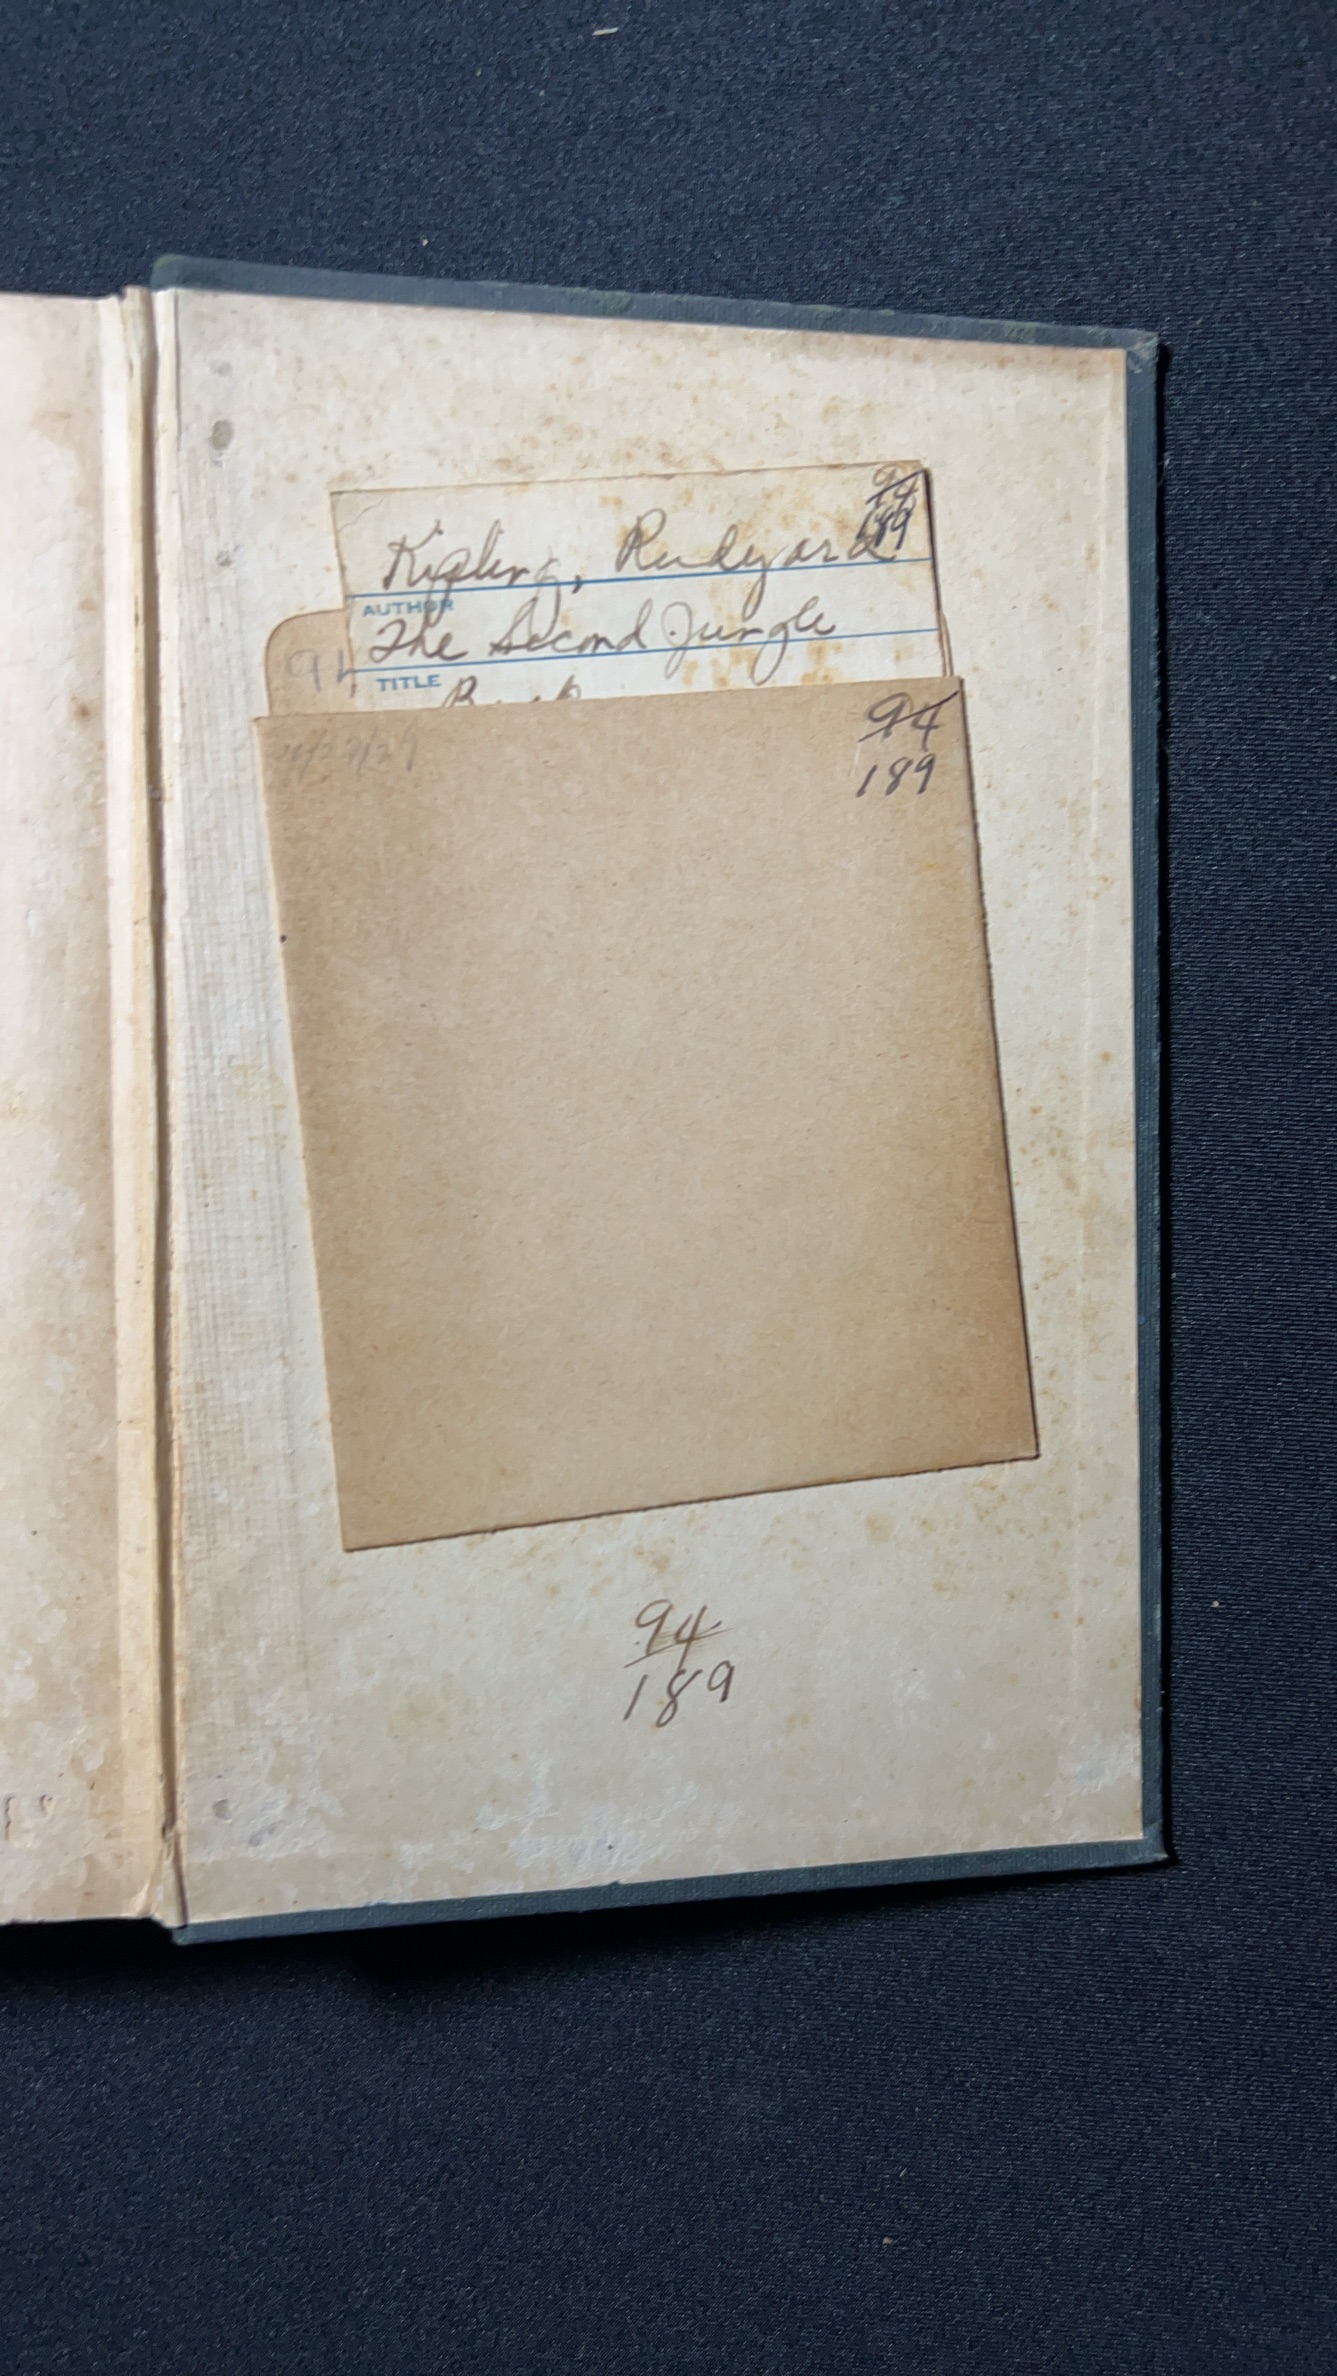 94
189
Kipling, Rudyard
AUTHOR
The Second Jungle
94
TITLE
Book
94
189
94
189